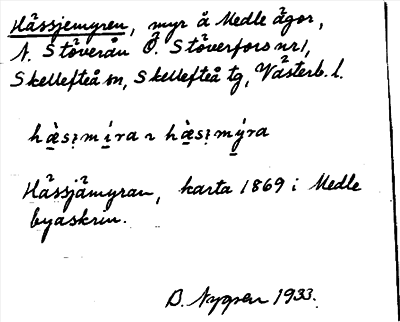 Hässjemyren, myr å Medle ägor,
N. Stöverån Ö. Stöverfors nr 1,
Skellefteå sn, Skellefteå tg, Västerb. l.
hà̱sı̣mí̱ra ~ hà̱sı̣mý̱ra
Hässjämyran, karta 1869 i Medle
byaskrin.
B. Nygren 1933.